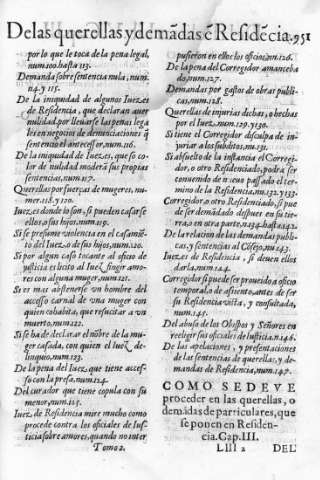 De las querellas y demãdas ẽ Residẽcia. 951
por lo que le toca de la pena legal,
num.110 hasta 113.
Demanda sobre sentencia nula, num.
114. y 115.
De la iniquidad de algunos Iuezes
de Residencia, que declaran auer
nulidad por lleuarse las penas lega
les en negocios de denunciaciones q̃
sentencio el antecessor, num.116.
De la iniquidad de Iuez, que so co-
lor de nulidad moderà sus propias
sentencias, num.117.
Querellas por fuerças de mugeres, nu-
mer.118. y 120.
Iuezes donde lo son, si pueden casarse
ellos, o sus hijos, num.119.
Si se presume violencia en el casamiẽ-
to del Iuez, o de sus hijos, num.120.
Si por algun caso tocante al oficio de
justicia es licito al Iuez, fingir amo-
res con alguna muger, num.121.
Si es mas abstenerse vn hombre del
accesso carnal de vna muger con
quien cohabita, que resucitar a vn
muerto, num.122.
Si se ha de declarar el nõbre de la mu-
ger casada, con quien el Iuez de-
linquio, num.123.
De la pena del Iuez, que tiene acces-
so con la presa, num.124.
Del curador que tiene copula con su
menor, num.125.
Iuez de Residencia mire mucho como
procede contra los oficiales de Ius-
ticia sobre amores, quando no inter
Tomo 2.
pusieron en ellos los oficios, num.126.
De la pena del Corregidor amanceba
do, num.127.
Demandas por gastos de obras publi-
cas, num.128.
Querellas de injurias dichas, o hechas
por el Iuez, num.129. y 130.
Si tiene el Corregidor disculpa de in-
juriar a los subditos, num.131.
Si absuelto de la instancia el Corregi-
dor, o otro Residenciado, podrà ser
conuenido de nueuo passado el ter-
mino de la Residencia, nu.132. y 133.
Corregidor, o otro Residenciado, si pue
de ser demãdado despues en su tie-
rra, o en otra parte, n.134. hasta 142.
De la relacion de las demandas publi-
cas, y sentencias al Cõsejo, nu.143.
Iuezes de Residencia, si deuen ellos
darla, num.144.
Corregidor si puede ser proueido a oficio
temporal, o de assiento, antes de ser
su Residencia vista, y consultada,
num.145.
Del abuso de los Obispos y Señores en
reelegir sus oficiales de Iusticia. n.146.
De las apelaciones, y presentaciones
de las sentencias de querellas, y de-
mandas de Residencia, num.147.
COMO SE DEVE
proceder en las querellas, o
demãdas de particulares, que
se ponen en Residen-
cia. Cap. III.
Llll 2 DEL